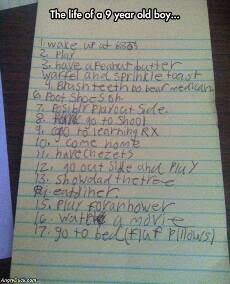 The life of a 9 year old boy...
1. wake up at
2. Play
3. have a Peanut butter
waffel and sprinkle toast
4. Brush teeth
6. Poot Shoes on.
7. Posibly Play out Side.
8. go to Shool
9. go to learning RX
10. come home
11. have chezets
12. go out side and Play
13. Show dad the
14. eat diner.
15. Play for an hower
16. Wath a movie
17. go to bed (fluf Pillows)
AngryDuck.com